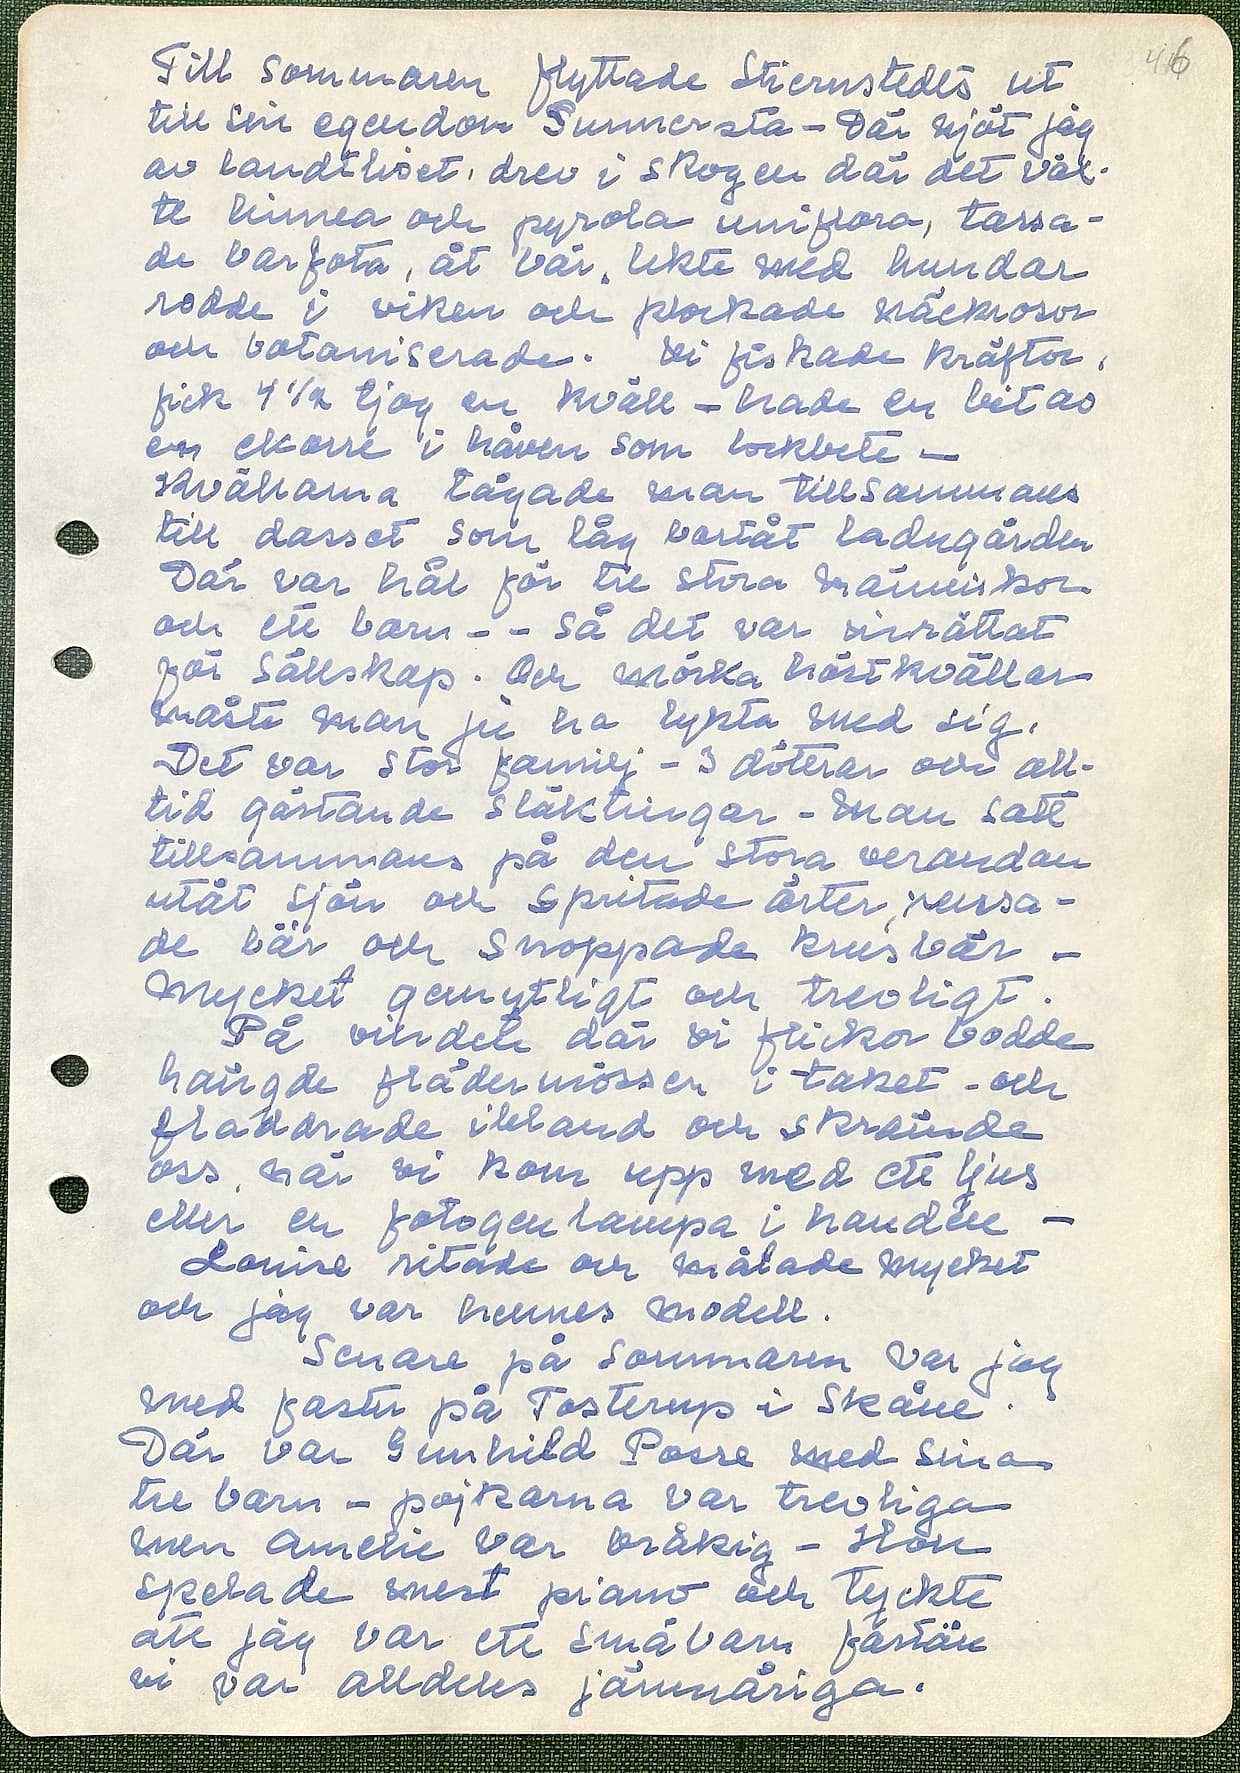 46
Till sommaren flyttade Stiernstedts ut
till sin egendom Sunnersta - Där njöt jag
av landtlivet, drev i skogen där det väx-
te linnea och pyrola uniflora, tassa-
de barfota, åt bär, lekte med hundar
rodde i viken och plockade näckrosor
och botaniserade. Vi fiskade kräftor,
fick 4 1/2 tjog en kväll - hade en bit av
en ekorre i håven som lockbete -
Kvällarna tågade man tillsammans
till dasset som låg bortåt ladugården
Där var hål för tre stora människor
och ett barn - - så det var inrättat
för sällskap. Och mörka höstkvällar
måste man ju ha lykta med sig.
Det var stor familj - 3 döttrar och all-
tid gästande släktingar - Man satt
tillsammans på den stora verandan
utåt sjön och spritade ärter, rensa-
de bär och snoppade krusbär -
Mycket gemytligt och trevligt.
På vinden där vi flickor bodde
hängde flädermössen i taket - och
fladdrade ibland och skrämde
oss, när vi kom upp med ett ljus
eller en fotogenlampa i handen -
Louise ritade och målade mycket
och jag var hennes modell.
Senare på sommaren var jag
med faster på Tosterup i Skåne.
Där var Gunhild Posse med sina
tre barn - pojkarna var trevliga
men Amelie var bråkig - Hon
spelade mest piano och tyckte
att jag var ett småbarn fastän
vi var alldeles jämnåriga.